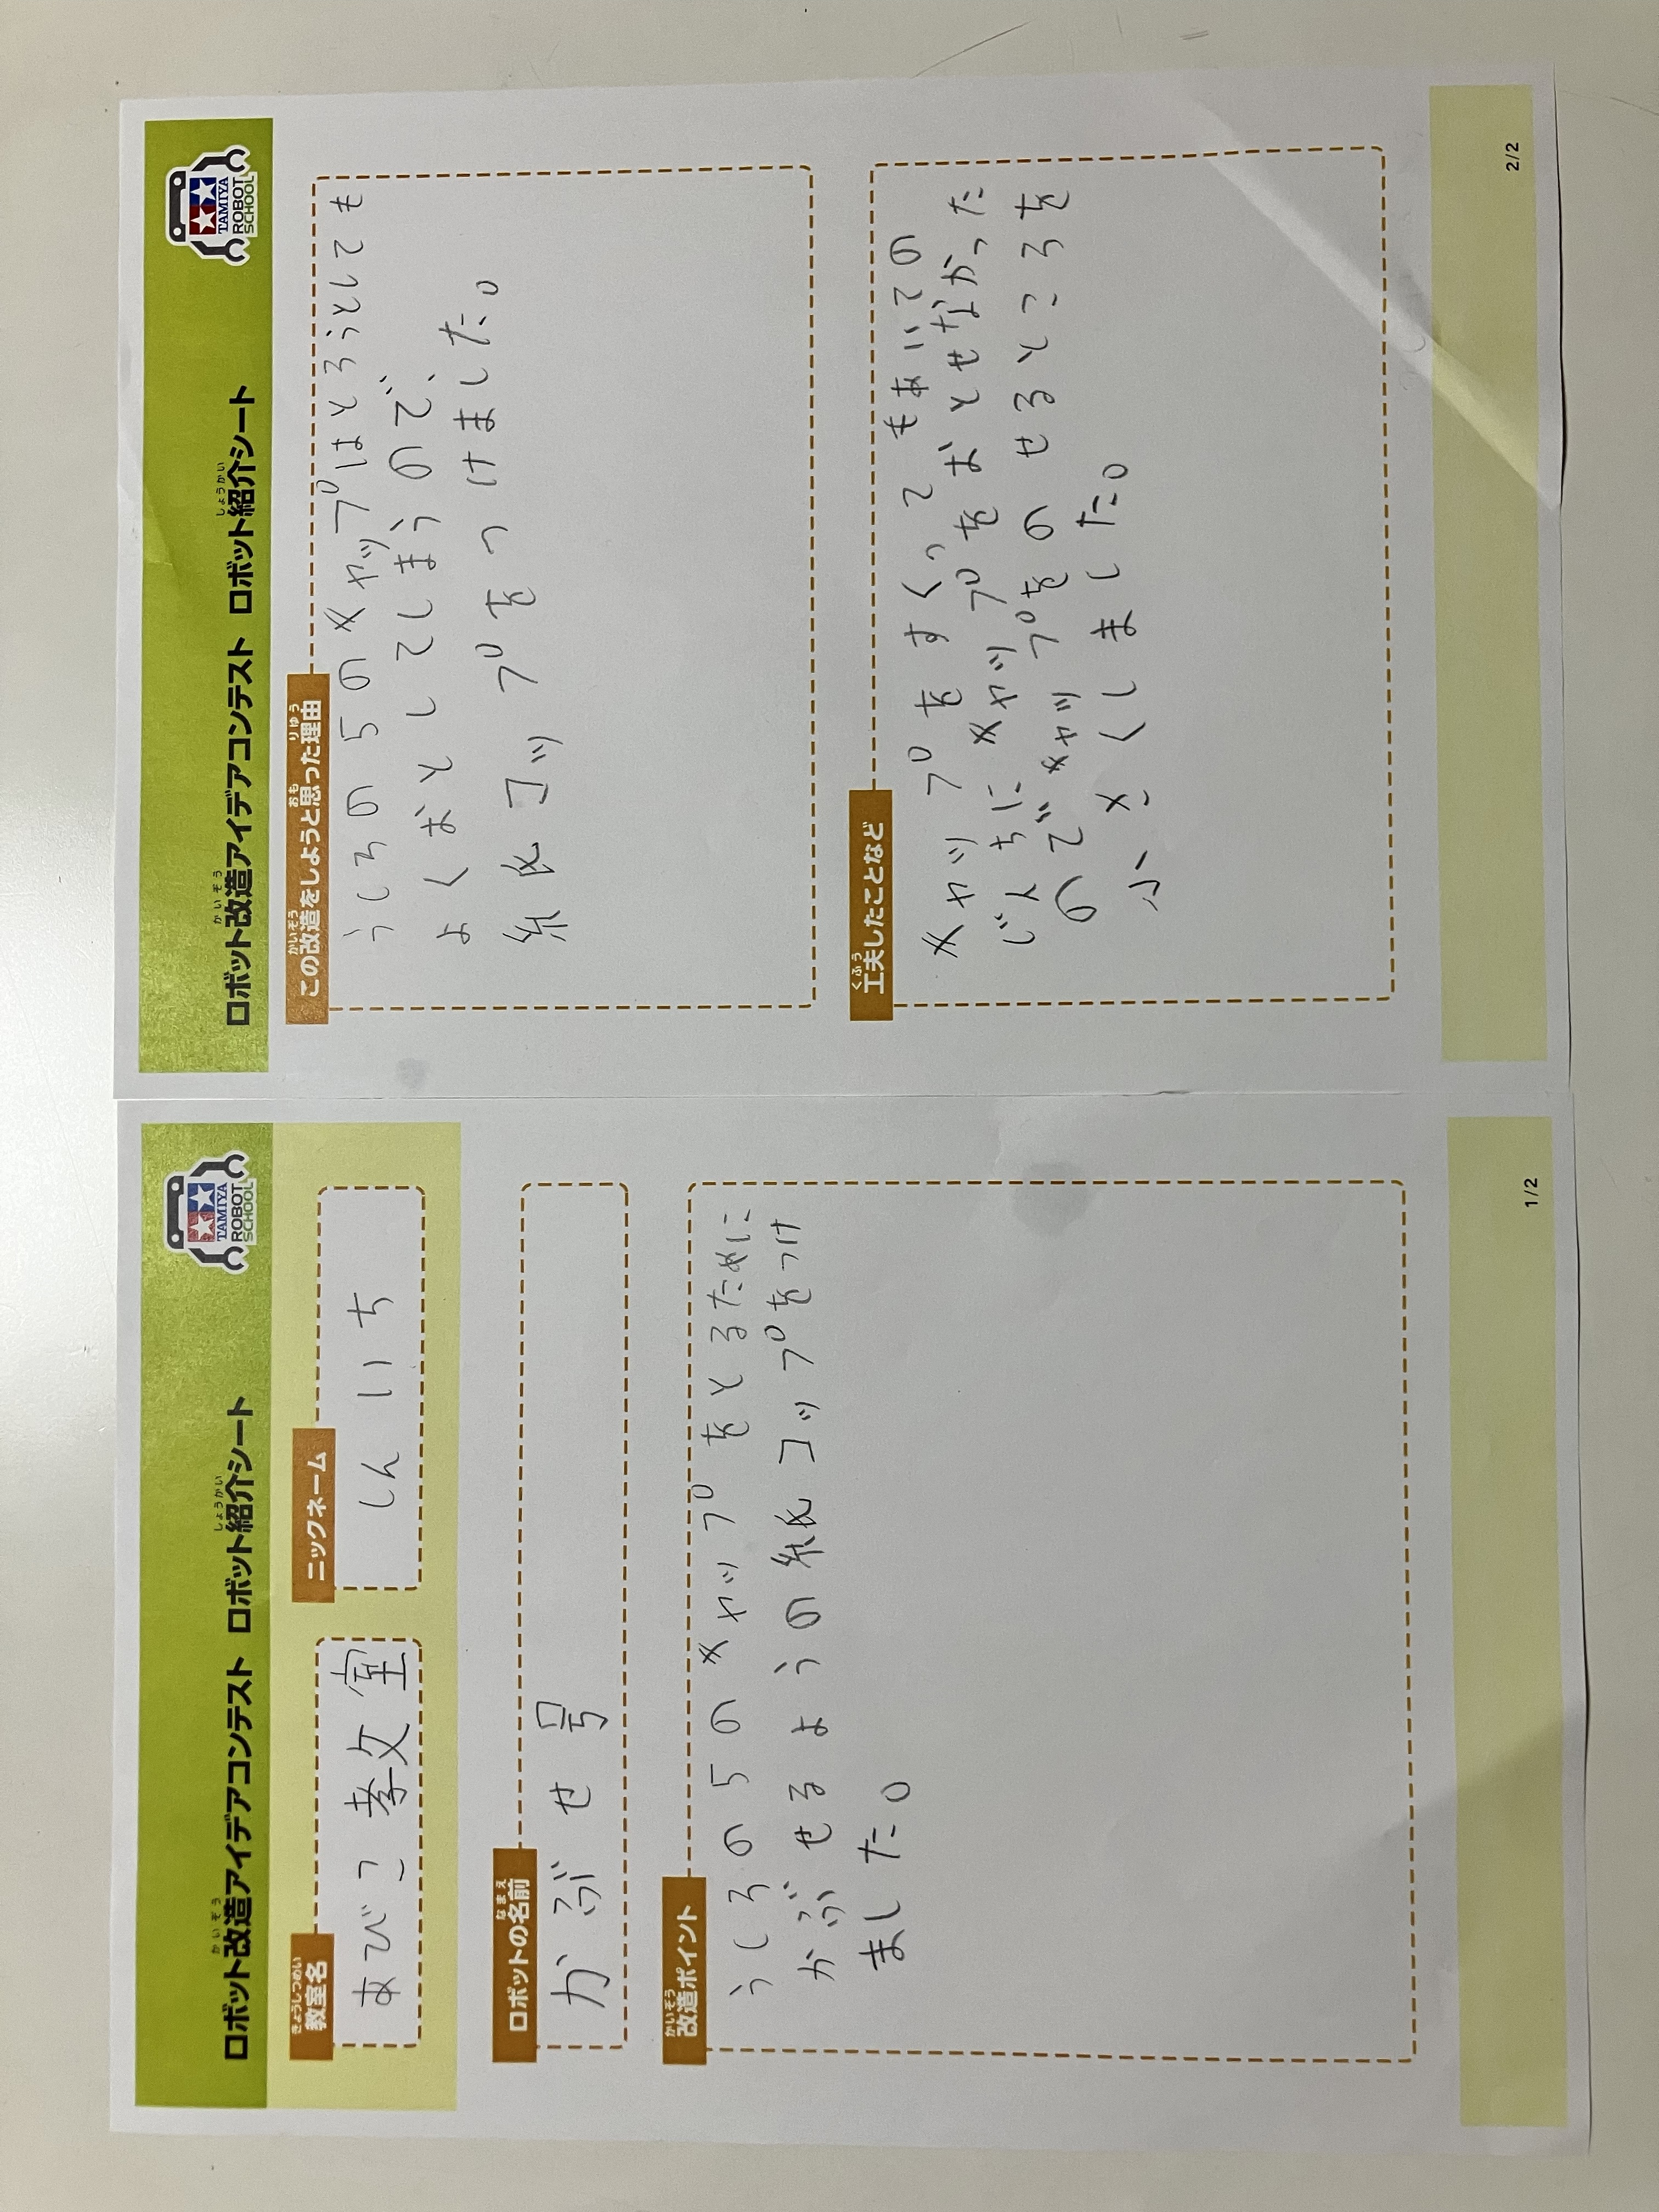 ロボット改造アイデアコンテスト ロボット紹介シート
かいぞう
しょうかい
TAMIYA
ROBOT
SCHOOL
きょうしつめい
教室名
あびこ教室
ニックネーム
しんいち
なまえ
ロボットの名前
かぶせ号
かいぞう
改造ポイント
うしろの5のキャップをとるために
かぶせるようの紙コップをつけ
ました。
1/2
ロボット改造アイデアコンテスト ロボット紹介シート
かいぞう
しょうかい
TAMIYA
ROBOT
SCHOOL
かいぞう
おも
りゆう
この改造をしようと思った理由
うしろの5のキャップはとろうとしても
よくおとしてしまうので、
紙コップをつけました。
くふう
工夫したことなど
キャップをすくってもあいての
じんちにキャップをおとせなかった
のでキャップをのせるところを
小さくしました。
2/2